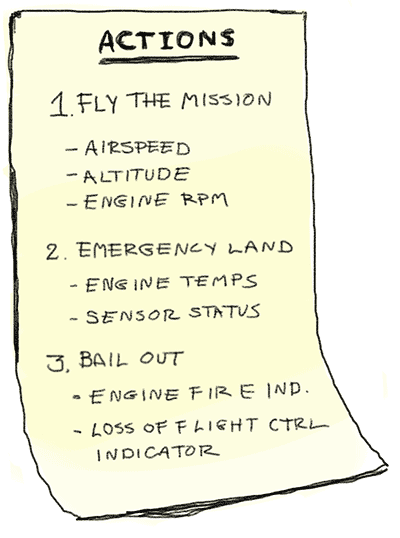 ACTIONS
1. FLY THE MISSION
- AIRSPEED
- ALTITUDE
- ENGINE RPM
2. EMERGENCY LAND
- ENGINE TEMPS
- SENSOR STATUS
3. BAIL OUT
- ENGINE FIRE IND.
- LOSS OF FLIGHT CTRL
INDICATOR